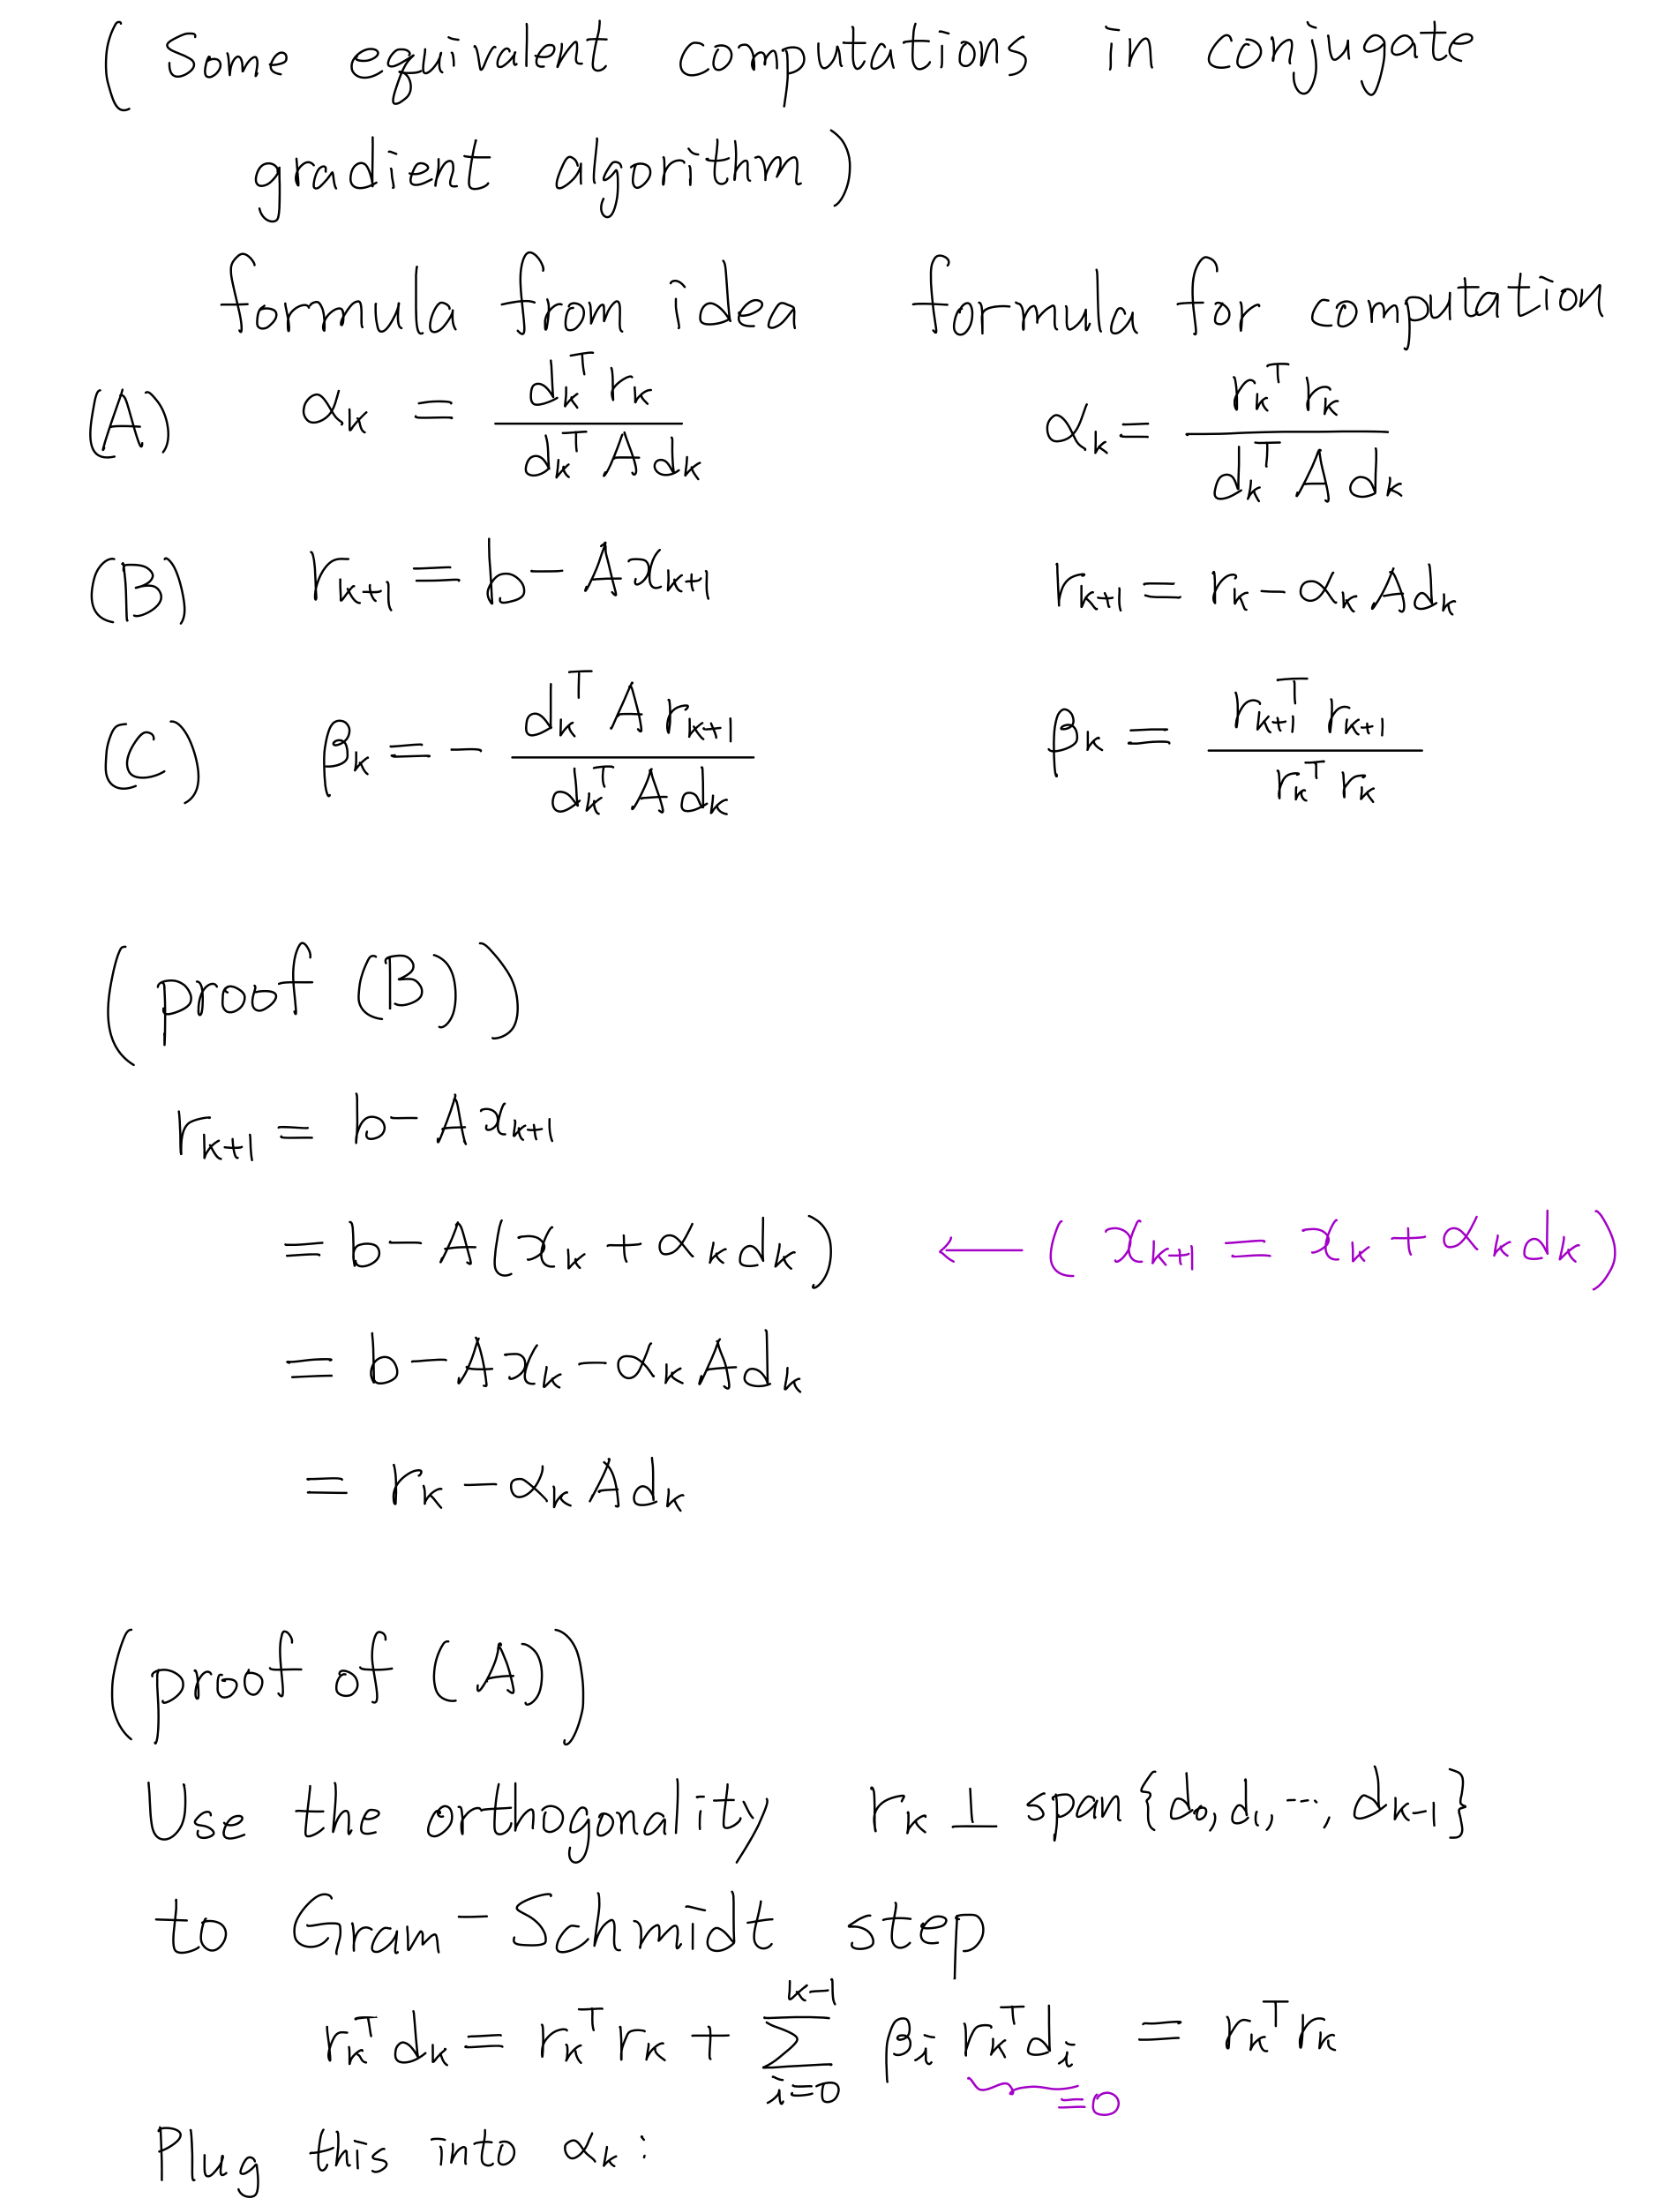 ( Some equivalent computations in conjugate
gradient algorithm )
formula from idea formula for computation
(A) αₖ = dₖᵀ rₖ / dₖᵀ A dₖ αₖ = rₖᵀ rₖ / dₖᵀ A dₖ
(B) rₖ₊₁ = b − A xₖ₊₁ rₖ₊₁ = rₖ − αₖ A dₖ
(C) βₖ = − dₖᵀ A rₖ₊₁ / dₖᵀ A dₖ βₖ = rₖ₊₁ᵀ rₖ₊₁ / rₖᵀ rₖ
(proof (B))
rₖ₊₁ = b − A xₖ₊₁
= b − A(xₖ + αₖ dₖ) ← ( xₖ₊₁ = xₖ + αₖ dₖ )
= b − A xₖ − αₖ A dₖ
= rₖ − αₖ A dₖ
(proof of (A))
Use the orthogonality rₖ ⊥ span{d₀, d₁, ⋯, dₖ₋₁}
to Gram-Schmidt step
rₖᵀ dₖ = rₖᵀ rₖ + ∑_{i=0}^{k−1} βᵢ rₖᵀ dᵢ = rₖᵀ rₖ
=0
Plug this into αₖ :